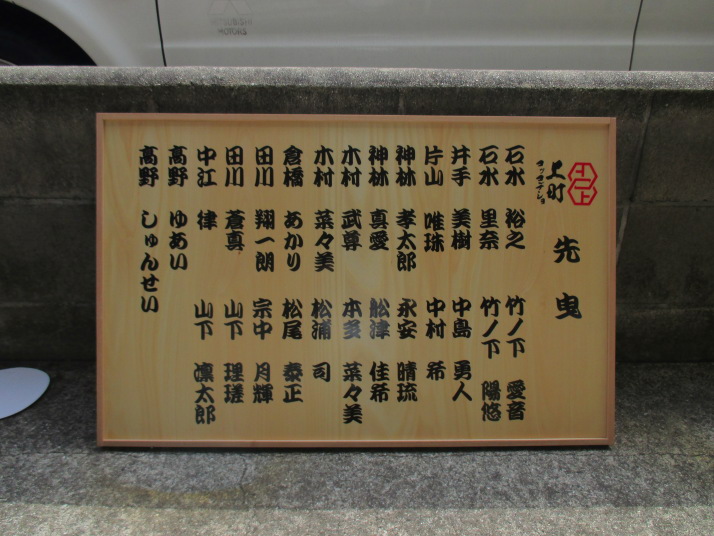 MITSUBISHI
MOTORS
上町
ヨッサデショ
先曳
石水 裕之
石水 里奈
井手 美樹
片山 唯珠
神林 孝太郎
神林 真愛
木村 武尊
木村 菜々美
倉橋 あかり
田川 翔一朗
田川 蒼真
中江 律
髙野 ゆあい
髙野 しゅんせい
竹ノ下 愛音
竹ノ下 陽悠
中島 勇人
中村 希
永安 晴琉
舩津 佳希
本多 菜々美
松浦 司
松尾 泰正
宗中 月輝
山下 理瑳
山下 凛太郎